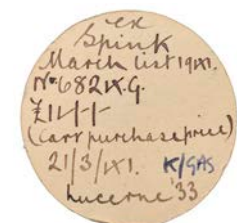 ex
Spink
March list 1921.
Nº 682 K.G.
£11/-/-
(Carr purchase price)
21/3/21. K/GAS
Lucerne '33